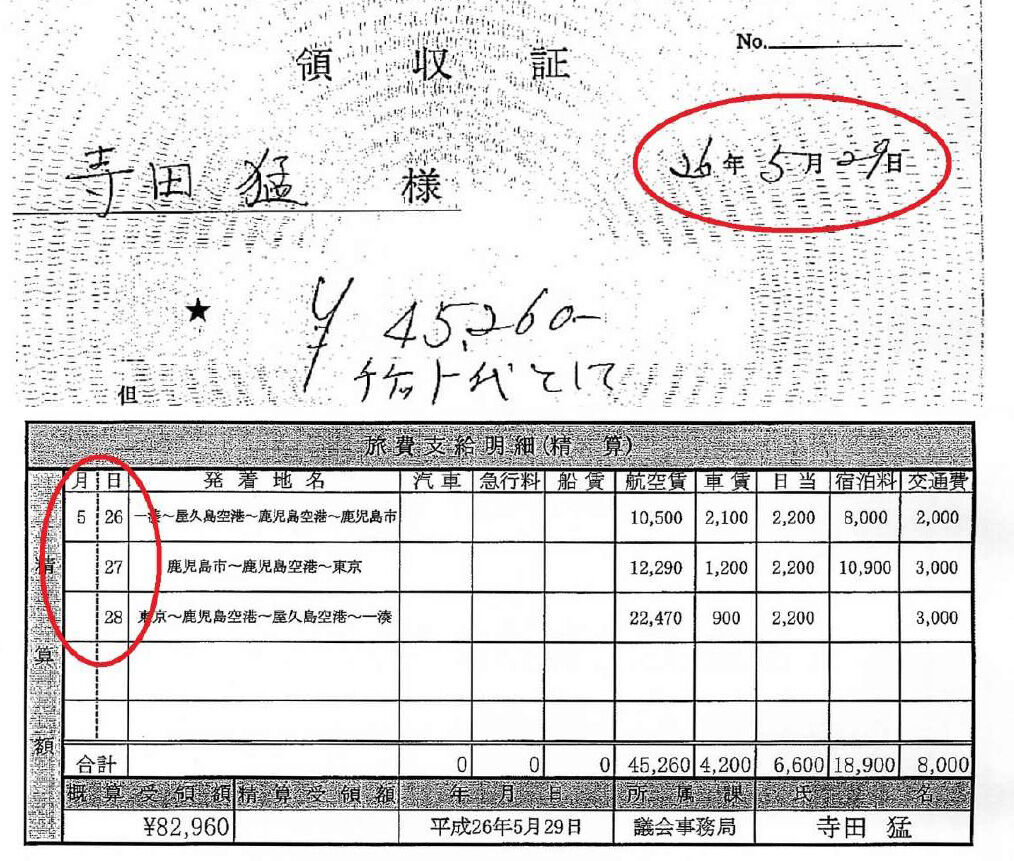 No.
領収証
26年5月29日
寺田 猛 様
★ ¥45,260-
但 チケット代として
旅費支給明細(精 算)
月 日 発着地名 汽車 急行料 船賃 航空賃 車賃 日当 宿泊料 交通費
5 26 一湊～屋久島空港～鹿児島空港～鹿児島市 10,500 2,100 2,200 8,000 2,000
27 鹿児島市～鹿児島空港～東京 12,290 1,200 2,200 10,900 3,000
28 東京～鹿児島空港～屋久島空港～一湊 22,470 900 2,200 3,000
精算額
合計 0 0 0 45,260 4,200 6,600 18,900 8,000
概算受領額 精算受領額 年月日 所属課 氏名
¥82,960 平成26年5月29日 議会事務局 寺田 猛